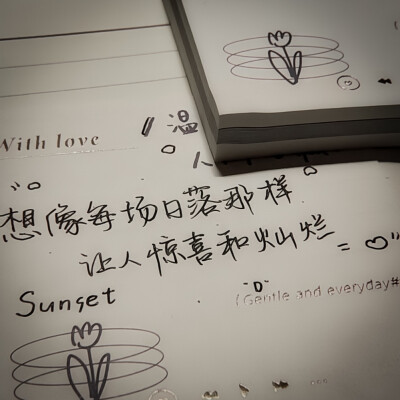 With love
温
想像每场日落那样
让人惊喜和灿烂
Sunset
(Gentle and everyday#